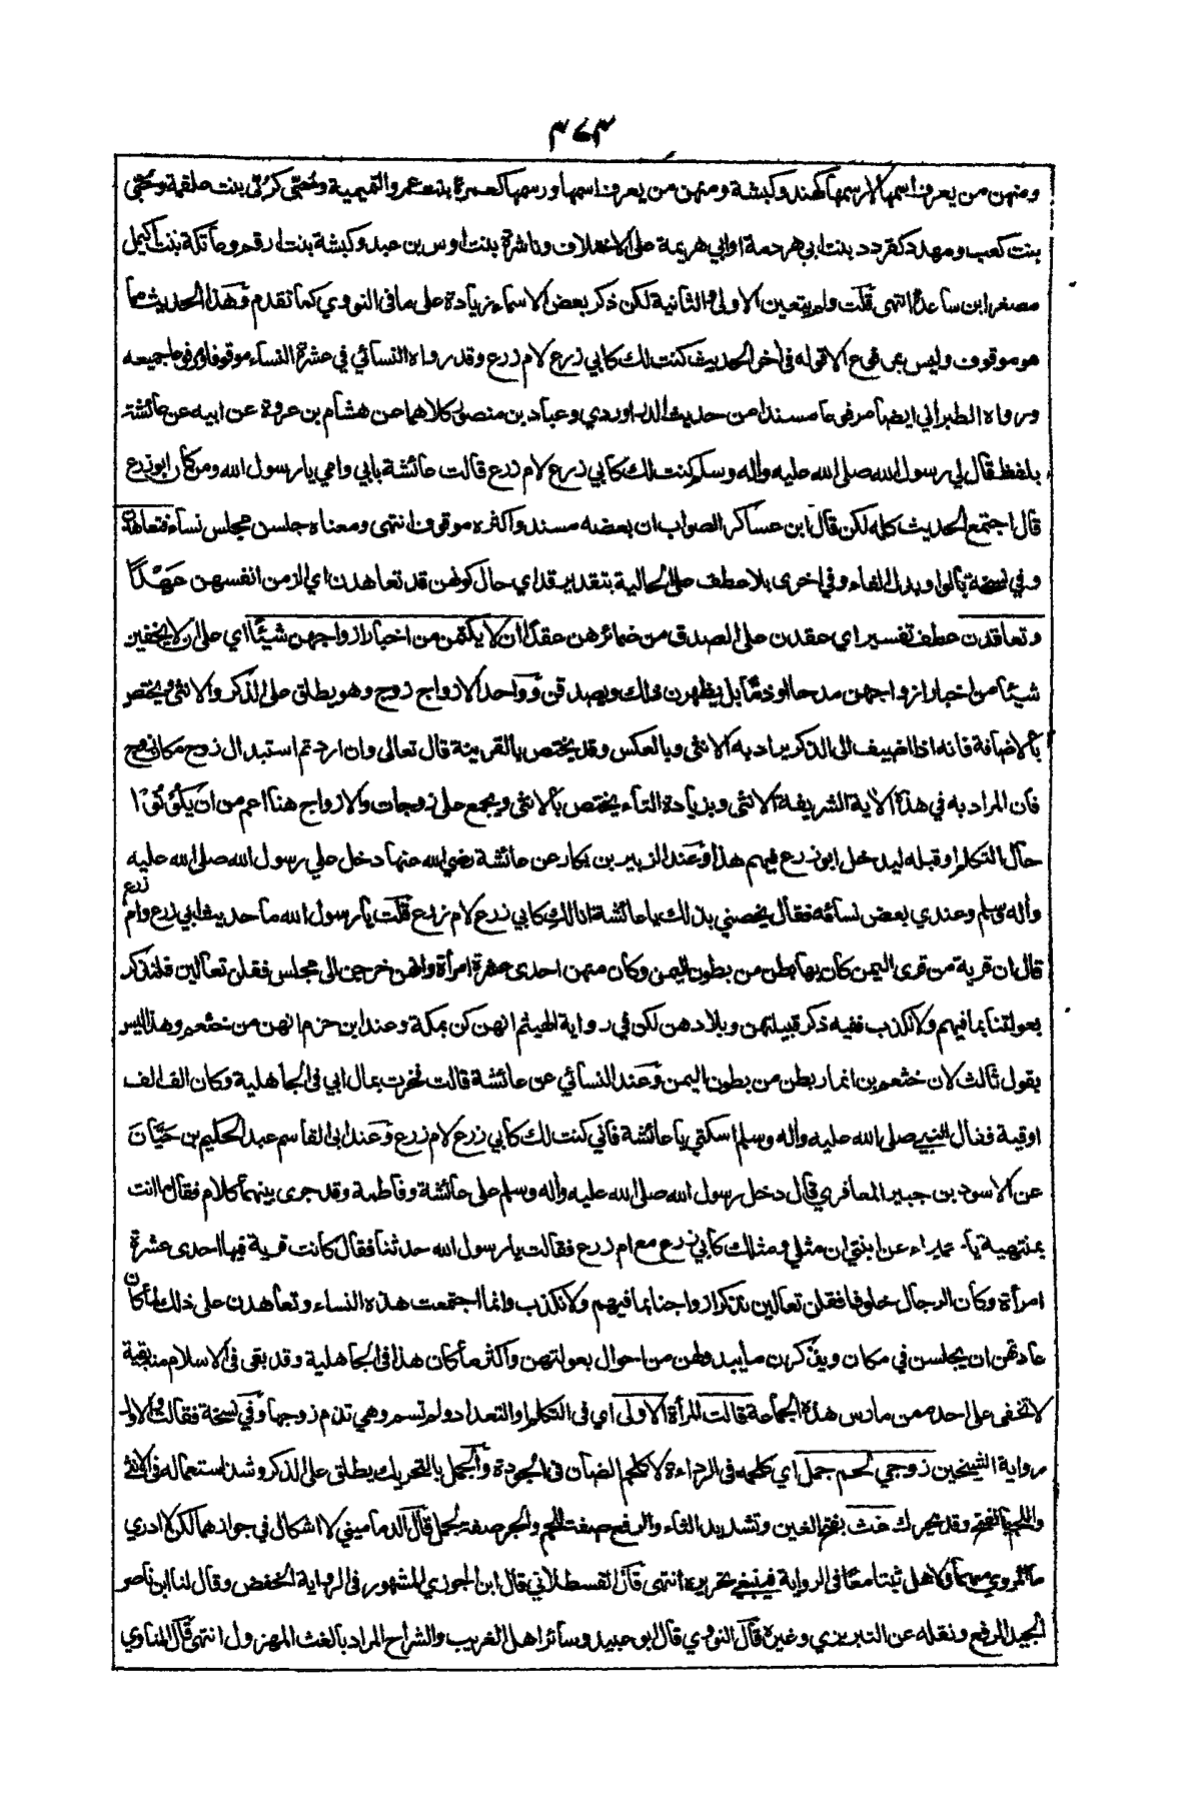 ٣٧٣
ومنهن من يعرف اسمها لا رسمها كهند وكبشة ومنهن من يعرف اسمها ورسمها كعمرة بنت عمرو التميمية وحبى كربى بنت علقمة وحبى
بنت كعب ومهدد كقردد بنت ابي هرمة او ابي هريمة على الاختلاف وناشرة بنت اوس بن عبد وكبشة بنت ارقم وعاتكة بنت اكيمل
مصغر ابن ساعدة انتهى قلت ولم يتعين الاولى والثانية لكن ذكر بعض الاسماء زيادة على ما في النووي كما تقدم وهذا الحديث مما
هو موقوف وليس بمرفوع الا قوله في اخر الحديث كنت لك كابي زرع لام زرع وقد رواه النسائي في عشرة النساء موقوفا ومرفوعا جميعه
ورواه الطبراني ايضا مرفوعا مسندا من حديث الدراوردي وعباد بن منصور كلاهما عن هشام بن عروة عن ابيه عن عائشة
بلفظ قال لي رسول الله صلى الله عليه واله وسلم كنت لك كابي زرع لام زرع قالت عائشة بابي وامي يا رسول الله ومن كان ابو زرع
قال اجتمع الحديث كله لكن قال ابن عساكر الصواب ان بعضه مسند واكثره موقوف انتهى ومعناه جلسن مجلس نساء فتعاهدن
وفي نسخة بالواو بدل الفاء وفي اخرى بلا عطف على الحالية بتقدير قد اي حال كونهن قد تعاهدن اي الزمن انفسهن عَهْدًا
وتعاقدن عطف تفسير اي عقدن على الصدق من ضمائرهن عقدًا ان لا يكتمن من اخبار ازواجهن شيئًا اي على ان لا يخفين
شيئا من اخبار ازواجهن مدحا او ذمًا بل يظهرن ذلك ويصدقن وواحد الازواج زوج وهو يطلق على الذكر والانثى ويختص
بالاضافة فانه اذا اضيف الى الذكر يراد به الانثى وبالعكس وقد يختص بالقرينة قال تعالى وان اردتم استبدال زوج مكان زوج
فان المراد به في هذه الاية الشريفة الانثى وبزيادة التاء يختص بالانثى ويجمع على زوجات والازواج هنا اعم من ان يكونوا
حال التكلم او قبله ليدخل ابو زرع فيهم هذا وعند الزبير بن بكار عن عائشة رضي الله عنها دخل علي رسول الله صلى الله عليه
واله وسلم وعندي بعض نسائه فقال يخصني بذلك يا عائشة انا لك كابي زرع لام زرع قلت يا رسول الله ما حديث ابي زرع وام زرع
قال ان قرية من قرى اليمن كان بها بطن من بطون اليمن وكان منهن احدى عشرة امرأة وانهن خرجن الى مجلس فقلن تعالين فلنذكر
بعولتنا بما فيهم ولا نكذب ففيه ذكر قبيلتهن وبلادهن لكن في رواية الهيثم انهن كن بمكة وعند ابن حزم انهن من خثعم وهذا ليس
بقول ثالث لان خثعم بن انمار بطن من بطون اليمن وعند النسائي عن عائشة قالت فخرت بمال ابي في الجاهلية وكان الف الف
اوقية فقال النبي صلى الله عليه واله وسلم اسكتي يا عائشة فاني كنت لك كابي زرع لام زرع وعند ابي القاسم عبد الحكيم بن حَيَّان
عن الاسود بن جبير المعافري قال دخل رسول الله صلى الله عليه واله وسلم على عائشة وفاطمة وقد جرى بينهما كلام فقال ما انت
بمنتهية يا حميراء عن ابنتي ان مثلي ومثلك كابي زرع مع ام زرع فقالت يا رسول الله حدثنا فقال كانت قرية فيها احدى عشرة
امرأة وكان الرجال خلوفا فقلن تعالين نذكر ازواجنا بما فيهم ولا نكذب وانما اجتمعت هذه النساء وتعاهدن على ذلك لما كان
عادتهن ان يجلسن في مكان ويذكرن ما يبدو لهن من احوال بعولتهن واكثر ما كان هذا في الجاهلية وقد بقي في الاسلام منه بقية
لا تخفى على احد ممن مارس هذه الجماعة قالت المرأة الاولى اي في التكلم او التعداد ولم تسم وهي تذم زوجها وفي نسخة فقالت الاولى
رواية الشيخين زوجي لحم جمل اي كلحمه في الرداءة لا كلحم الضأن في الجودة والجمل بالتحريك يطلق على الذكر وشذ استعماله في الانثى
واللحم بالفتح وقد يحرك غث بفتح الغين وتشديد الثاء والرفع صفة اللحم والجر صفة الجمل قال الدماميني لا اشكال في جوازهما لكن لا ادري
ما المروي منهما وهل ثبتا معًا في الرواية فينبغي تحريره انتهى قال القسطلاني قال ابن الجوزي المشهور في الرواية الخفض وقال لنا ابن ناصر
الجيد الرفع ونقله عن التبريزي وغيره قال النووي قال ابو عبيد وسائر اهل الغريب والشراح المراد بالغث المهزول انتهى قال المناوي